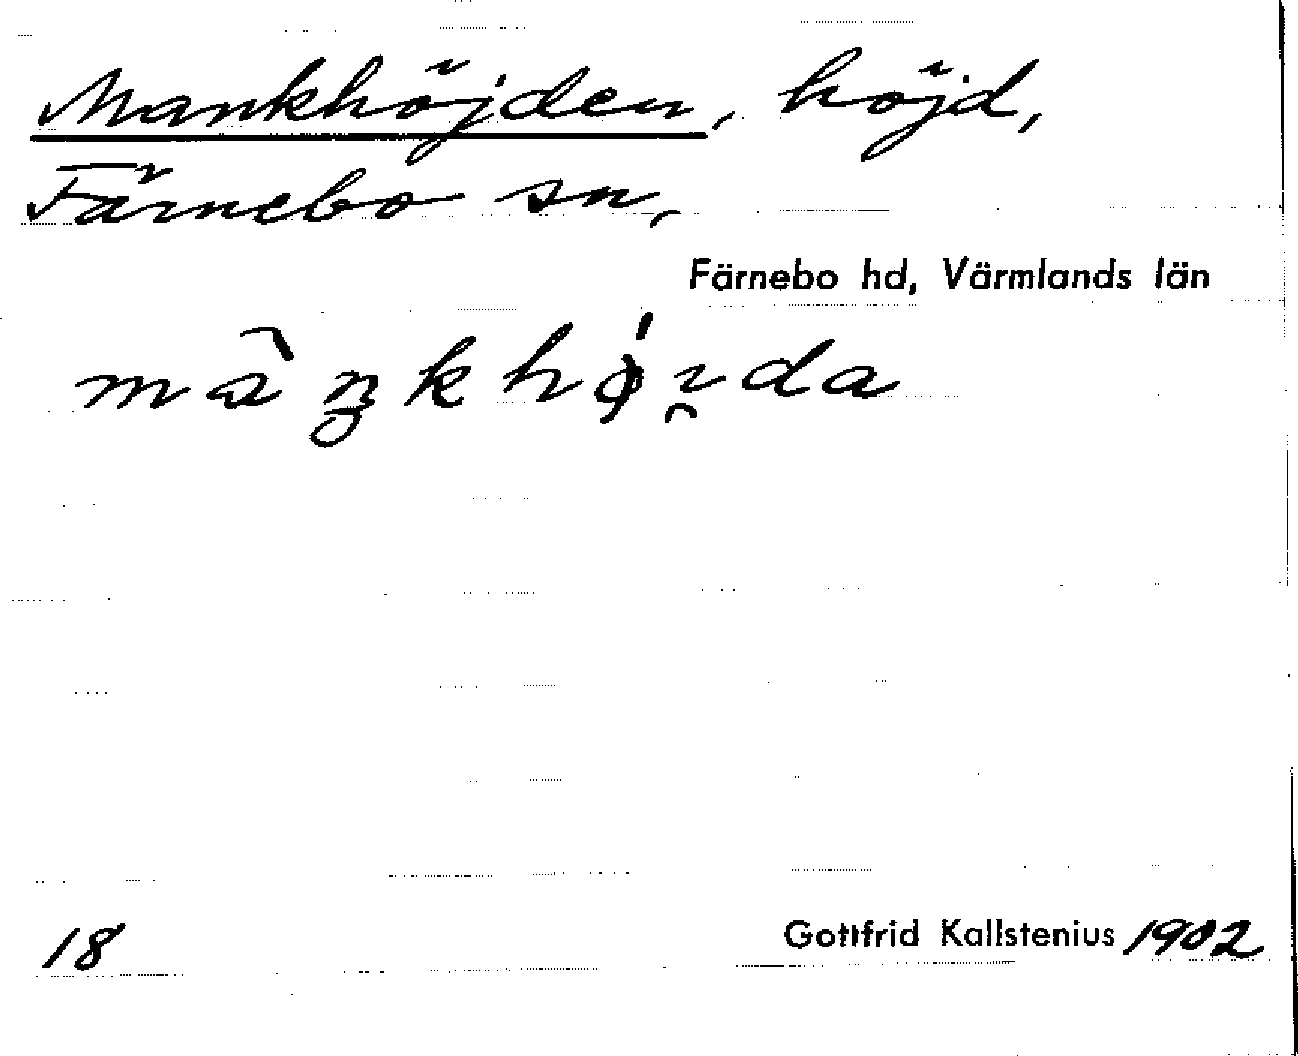 Mankhöjden, höjd,
Färnebo sn,
Färnebo hd, Värmlands län
18
Gottfrid Kallstenius 1902